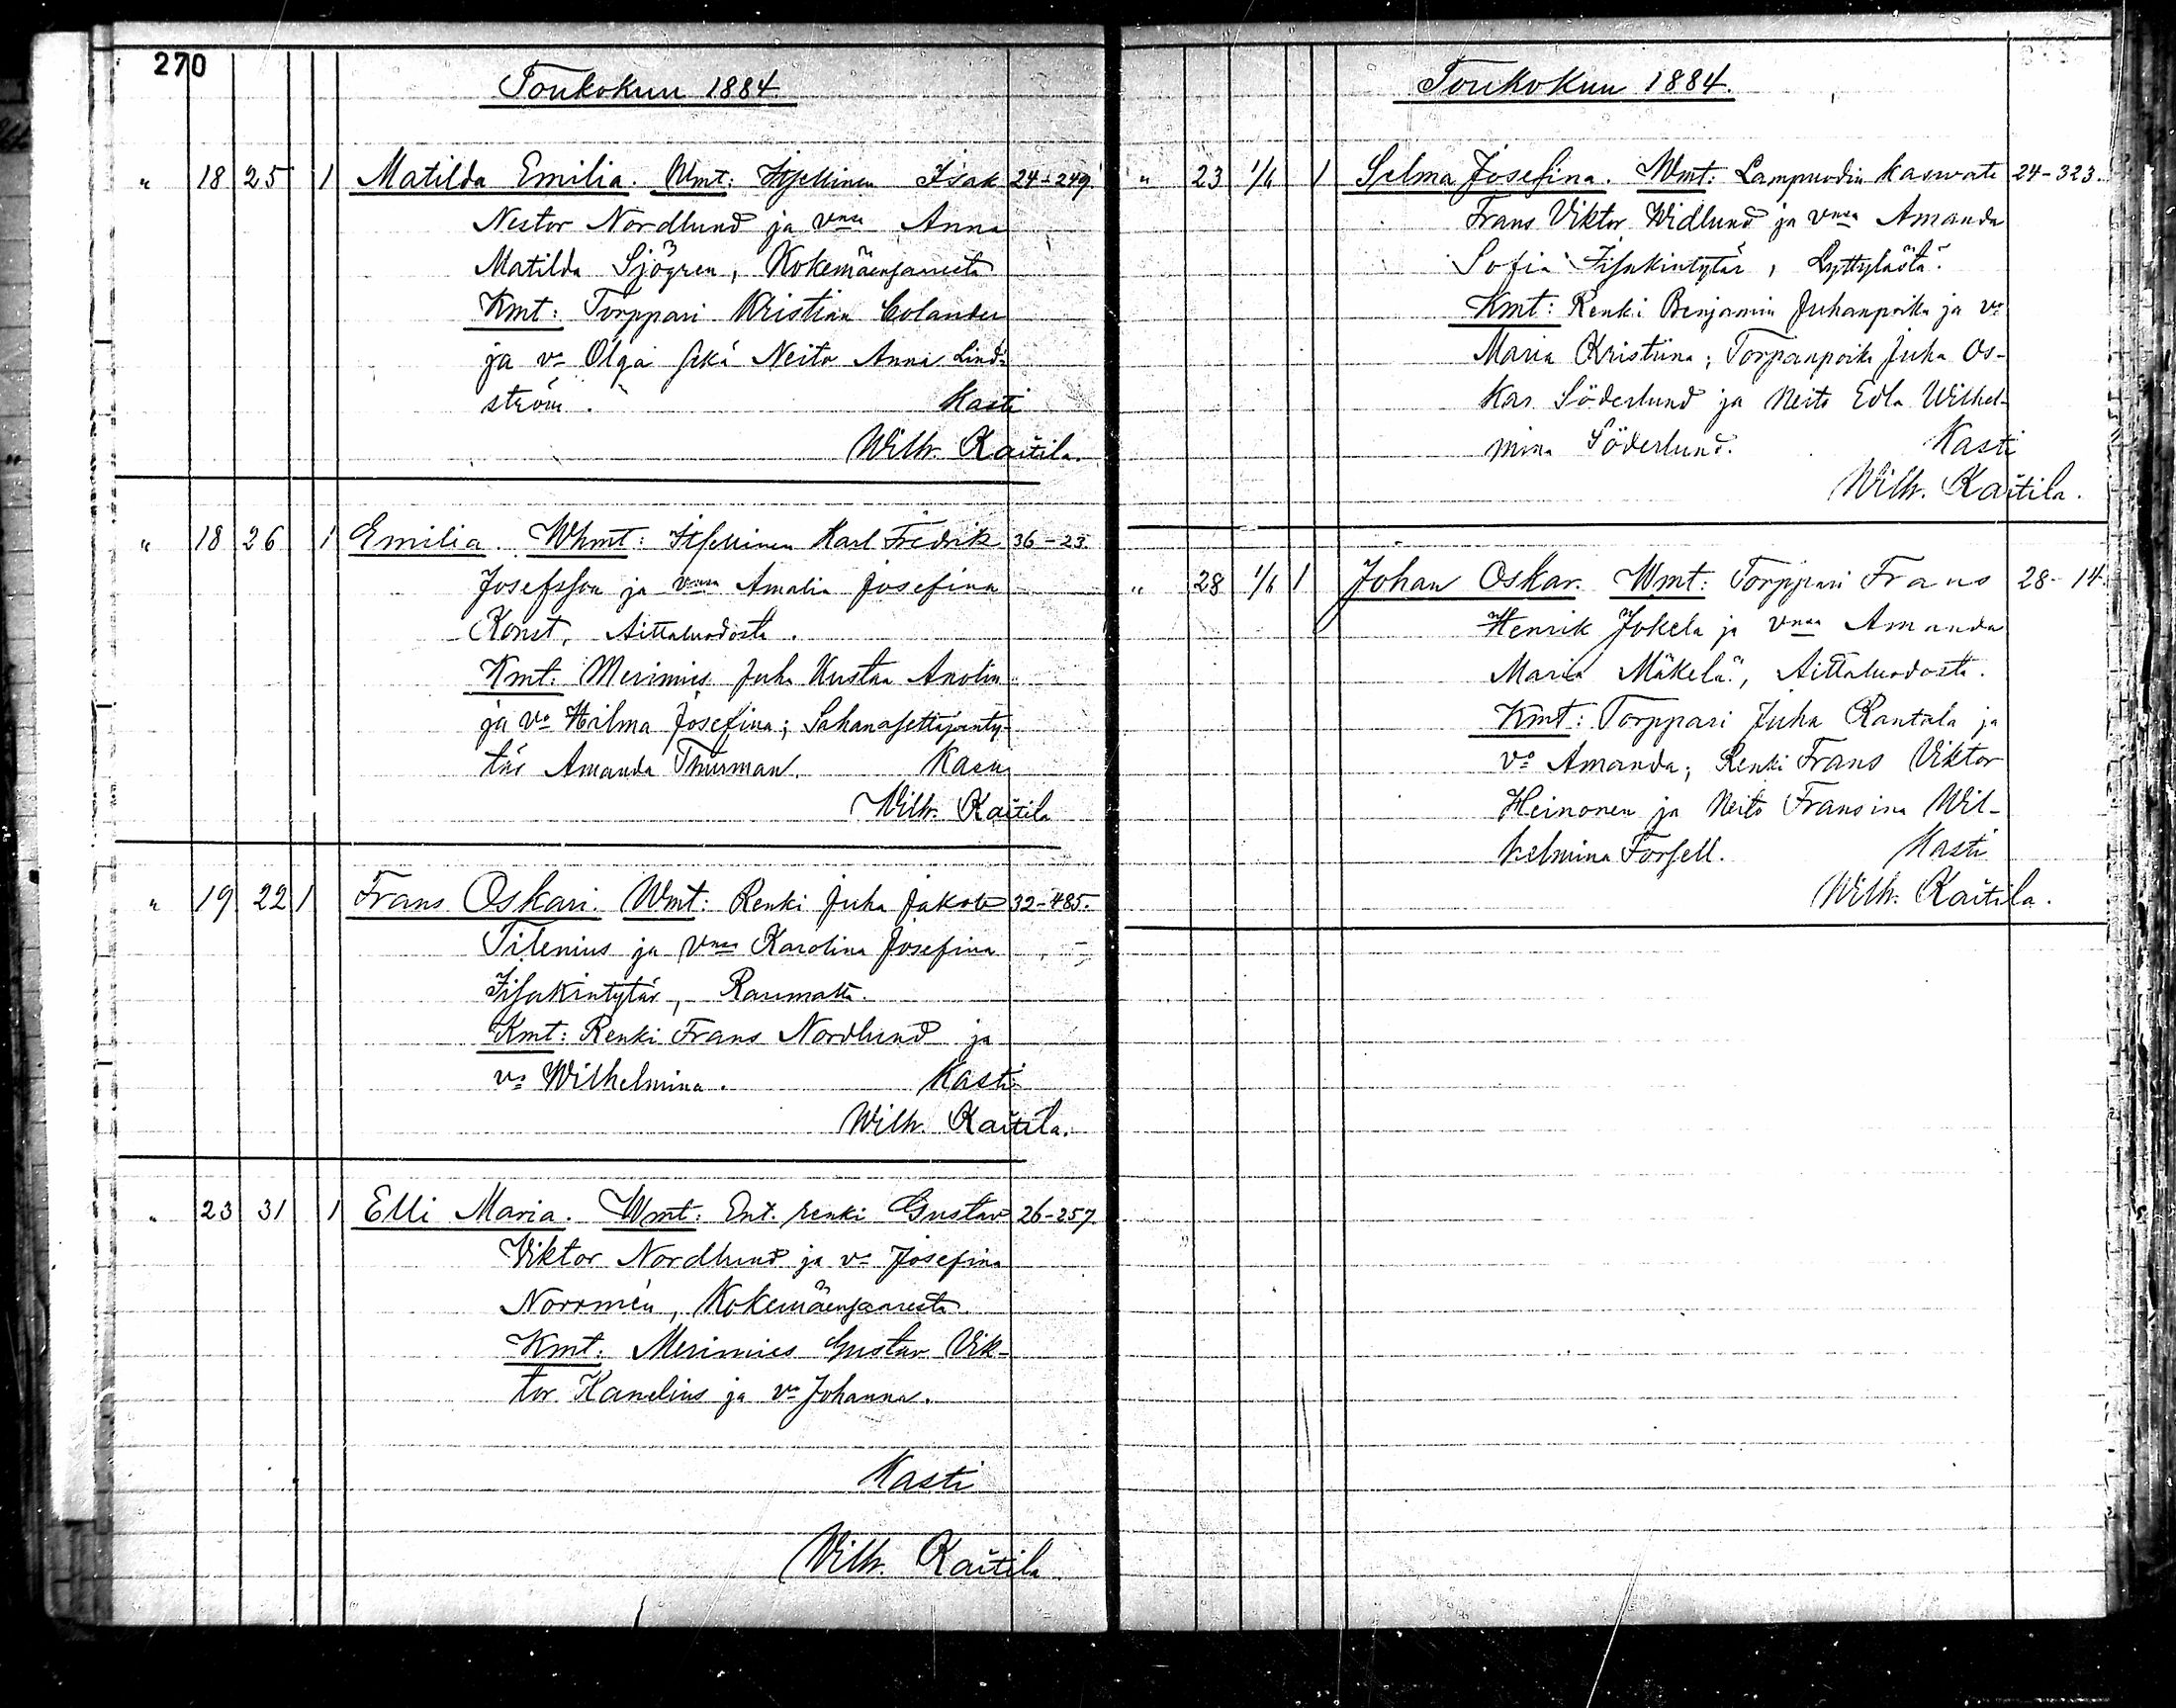 270
Toukokuu 1884.
" 18 25 1 Matilda Emilia. Wmt: Itsellinen Isak 24-249.
Nestor Nordlund ja vnsa Anna
Matilda Sjögren, Kokemäensaaresta
Kmt: Torppari Kristian Colander
ja vo Olga sekä Neito Anna Lind-
ström. Kasti
Wilh. Kaitila.
" 18 26 1 Emilia. Whmt: Itsellinen Karl Fredrik 36-23.
Josefsson ja vnsa Amalia Josefina
Konst, Aittaluodosta.
Kmt: Merimies Juha Kustaa
ja vo Hilma Josefina; Sahanasettajanty-
tär Amanda Thurman. Kasti
Wilh. Kaitila
" 19 22 1 Frans Oskari. Wmt: Renki Juha Jakob 32-485.
Tilenius ja vnsa Karolina Josefina
Iisakintytär, Raumalta.
Kmt: Renki Frans Nordlund ja
vo Wilhelmina. Kasti
Wilh. Kaitila.
" 23 31 1 Elli Maria. Wmt: Ent. renki Gustav 26-257.
Viktor Nordlund ja vo Josefina
Norrmén, Kokemäensaaresta.
Kmt: Merimies Gustav Vik-
tor Kanelius ja vo Johanna.
Kasti
Wilh. Kaitila.
Toukokuu 1884.
" 23 1/6 1 Selma Josefina. Wmt: Lampuodin kasvate 24-323.
Frans Viktor Widlund ja vnsa Amanda
Sofia Iisakintytär, Lyttylästä.
Kmt: Renki Benjamin Juhanpoika ja vo
Maria Kristiina; Torpanpoika Juha Os-
kar Söderlund ja Neito Edla Wilhel-
mina Söderlund. Kasti
Wilh. Kaitila.
" 28 1/6 1 Johan Oskar. Wmt: Torppari Frans 28-14.
Henrik Jokela ja vnsa Amanda
Maria Mäkelä, Aittaluodosta.
Kmt: Torppari Juha Rantala ja
vo Amanda; Renki Frans Viktor
Heinonen ja Neito Fransina Wil-
helmina Forsell. Kasti
Wilh. Kaitila.